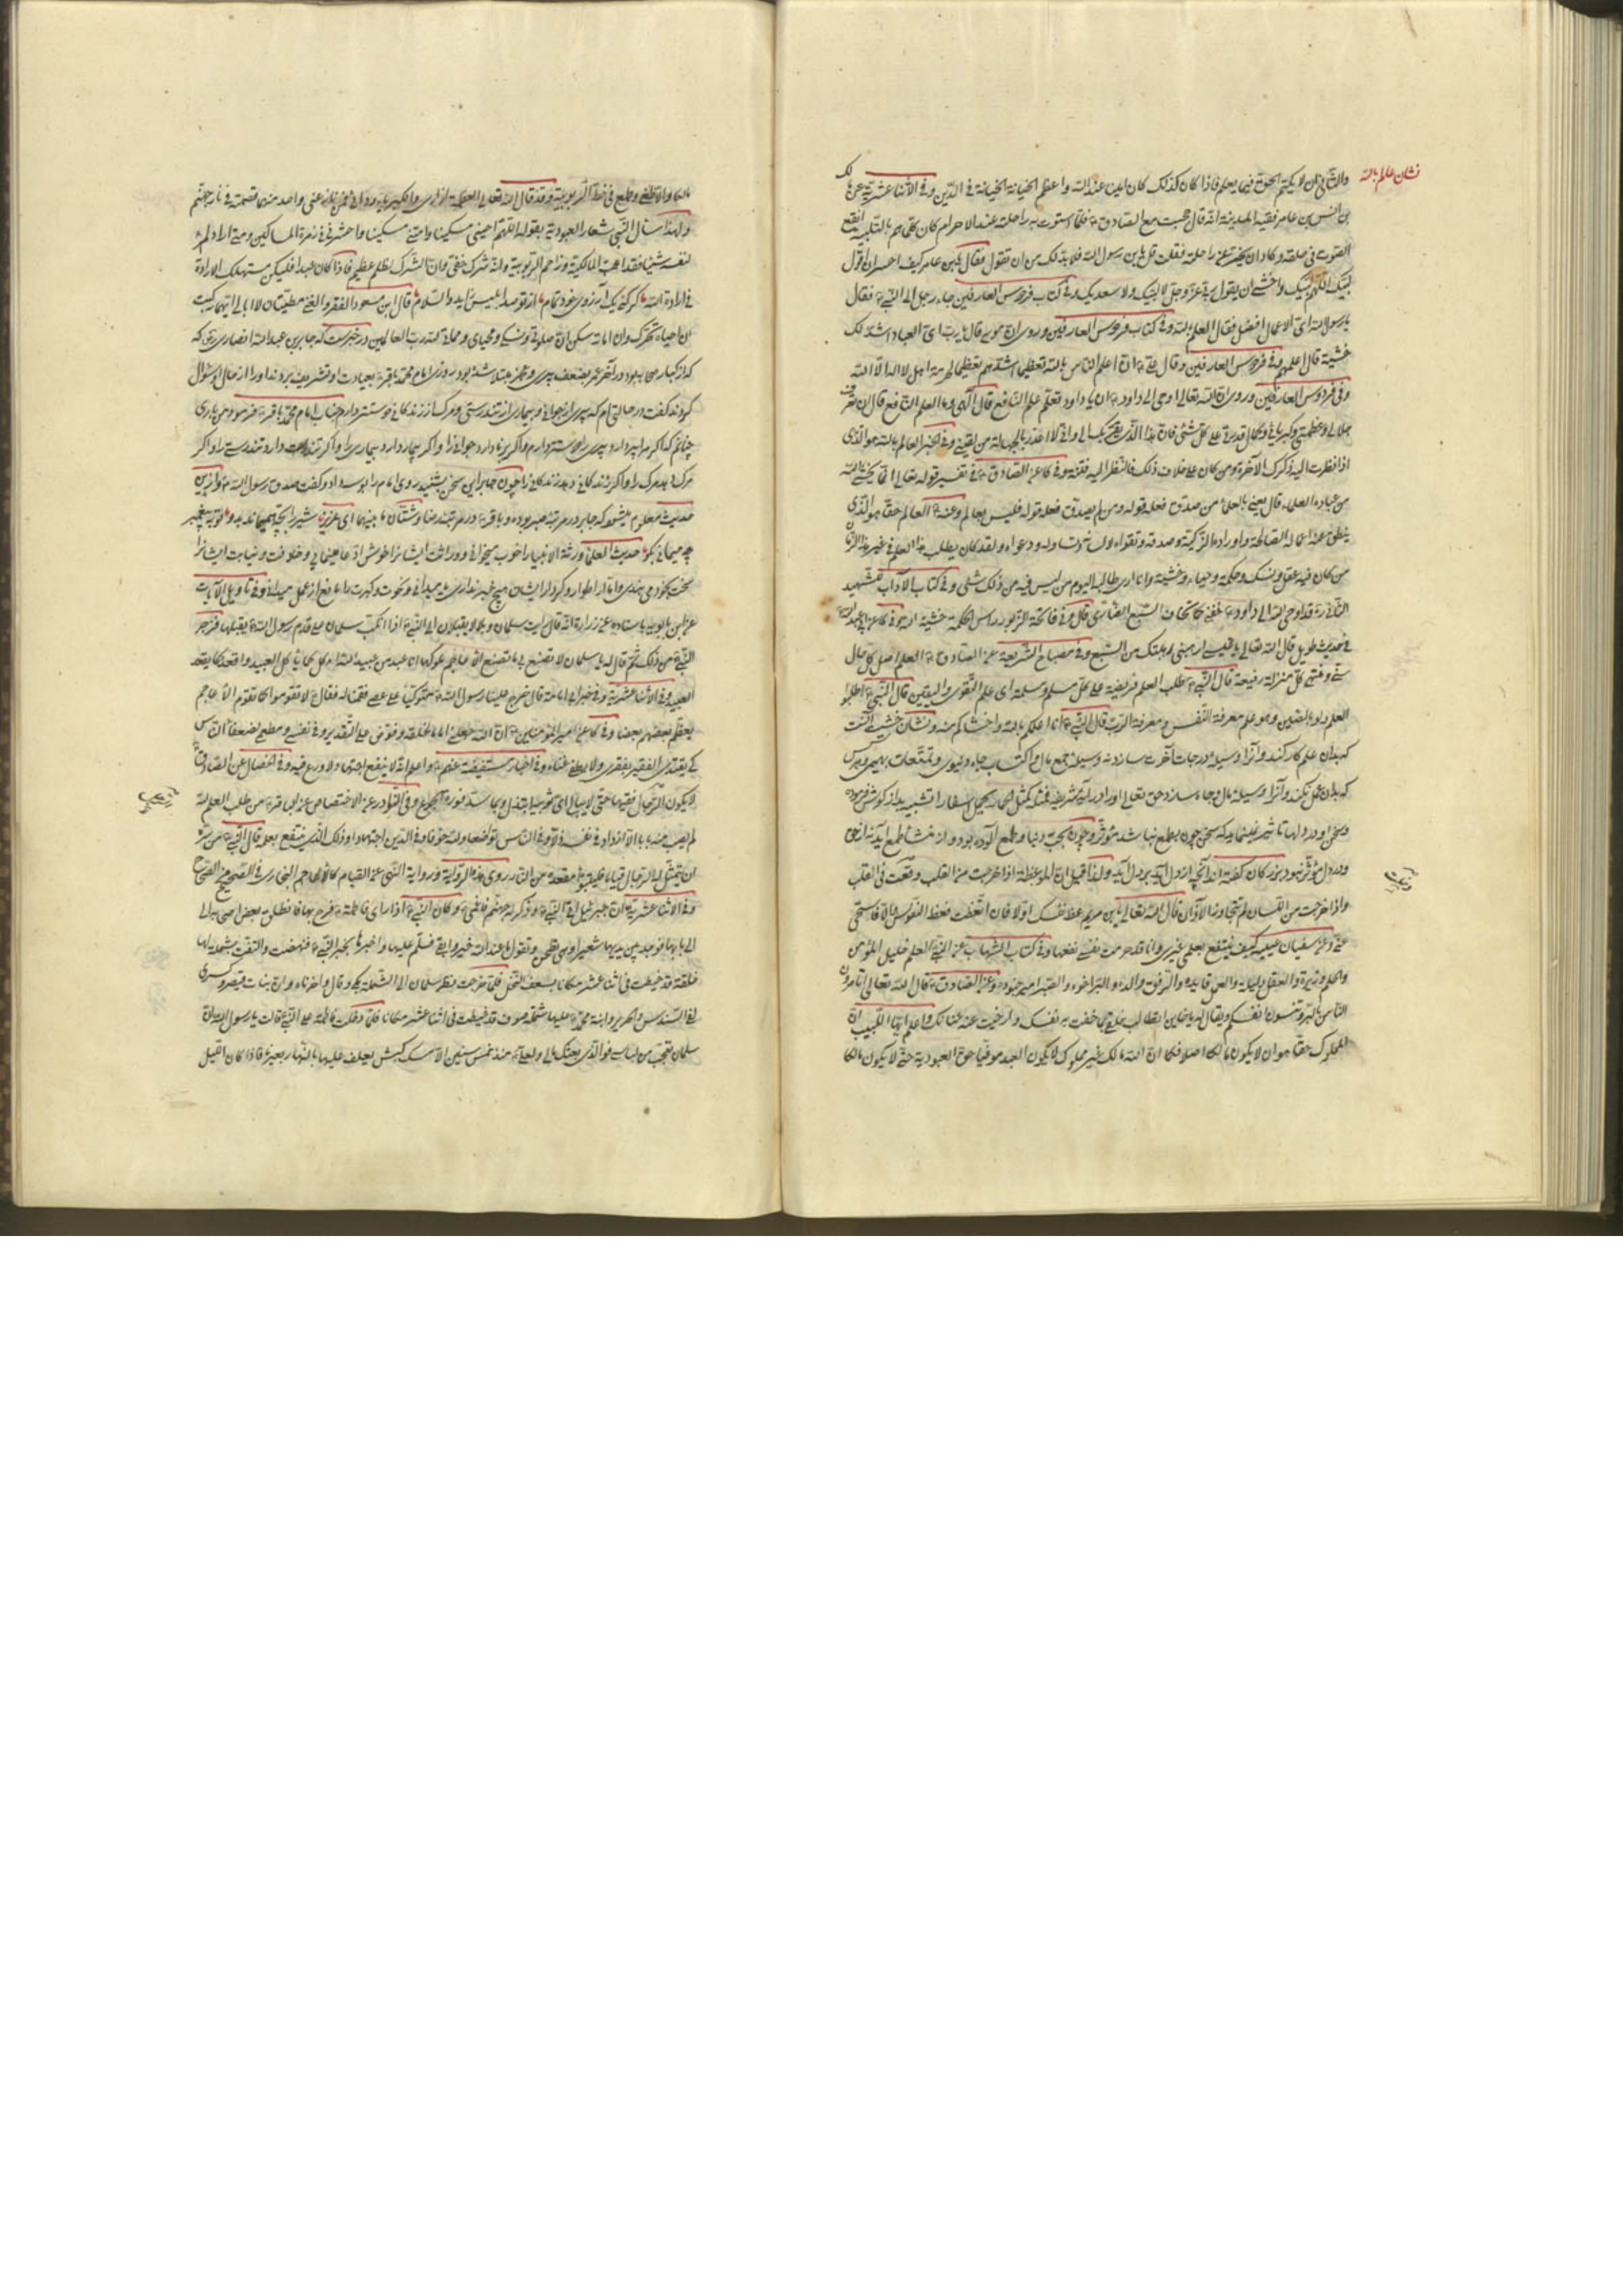 نشان عالم بالله
والثانی ان لا یکتم الحق فیما یعلم فاذا کان کذلک کان امینا عند الله واعظم الخیانة الخیانة فی الدین وفی الاثنا عشریة عن مالک
بن انس بن عامر فقیه المدینة انه قال حججت مع الصادق فلما استوت به راحلته عند الاحرام کان کلما هم بالتلبیة انقطع
الصوت فی حلقه وکاد ان یخر عن راحلته فقلت قل یابن رسول الله فلا بد لک من ان تقول فقال یابن عامر کیف اجسر ان اقول
لبیک اللهم لبیک واخشی ان یقول ربی عز وجل لا لبیک ولا سعدیک وفی کتاب فردوس العارفین جاء رجل الی النبی فقال
یا رسول الله ای الاعمال افضل فقال العلم بالله وفی کتاب فردوس العارفین وروی ان موسی قال یا رب ای العباد اشد لک
خشیة قال اعلمهم وفی فردوس العارفین وقال ان اعلم الناس بالله تعظیما اشدهم تعظیما لحرمة اهل لا اله الا الله
وفی فردوس العارفین وروی ان الله تعالی اوحی الی داود ان یا داود تعلم علم النافع قال الهی وما العلم النافع قال ان تعرف
جلالی وعظمتی وکبریائی وکمال قدرتی علی کل شئ فان هذا الذی یقربک الی وانی لا اعذر بالجهالة من لقینی وفی الخبر العالم بالله هو الذی
اذا نظرت الیه ذکرک الآخرة ومن کان علی خلاف ذلک فالنظر الیه فتنة وفی کا عن الصادق فی تفسیر قوله تعالی انما یخشی الله
من عباده العلماء قال یعنی بالعلماء من صدق فعله قوله ومن لم یصدق فعله قوله فلیس بعالم وعنه العالم حقا هو الذی
ینطق عنه اعماله الصالحة واوراده الزکیة وصدقه وتقواه ولسانه وتصاوله ودعواه ولقد کان یطلب هذا العلم فی غیر هذا الزمان
من کان فیه عقل ونسک وحکمة وحیاء وخشیة وانا اری طالبه الیوم من لیس فیه من ذلک شئ وفی کتاب الآداب للشهید
الثانی ره قد اوحی الله الی داود خفنی کما تخاف السبع الضاری قال وفی فاتحة الزبور راس الحکمة خشیة الله وفی کا عن ابی عبدالله
فی حدیث طویل قال الله تعالی وفی مصباح الشریعة عن الصادق العلم اصل کل حال
سنی ومنتهی کل منزلة رفیعة قال النبی طلب العلم فریضة علی کل مسلم ومسلمة ای علم التقوی والیقین قال النبی اطلبوا
العلم ولو بالصین وهو علم معرفة النفس ومعرفة الرب قال النبی انا اعلمکم بالله واخشاکم منه ونشان خشیت آنست
که بدان علم کار کند و آنرا وسیله درجات آخرت سازد نه وسیله جمع مال و اکتساب جاه دنیوی و تمتعات بهیمی و هر کس
که بدان عمل نکند و آنرا وسیله مال و جاه سازد حق تعالی او را در آیه شریفه فمثله کمثل الحمار یحمل اسفارا تشبیه بدراز گوش فرموده
وسخن او در دلها تاثیر نمینماید که سخن چون بی طمع نباشد مؤثر و چون بمحبت دنیا و طمع آلوده بود و از منشا طمع آید نه از حق
در دل مؤثر نبود بزرکان کفته اند آنچه از دل آید بر دل آید ولذا قیل ان الموعظة اذا خرجت من القلب وقعت فی القلب
واذا خرجت من اللسان لم تتجاوز الآذان قال الله تعالی یابن مریم عظ نفسک اولا فان اتعظت فعظ النفوس والا فاستحی
منی وعن سفیان عیینه کیف ینتفع بعلمی غیری وانا قد حرمت نفسی نفعها وفی کتاب الشهاب عن النبی العلم خلیل المؤمن
والحلم وزیره والعقل دلیله والعمل قایده والرفق والده والبر اخوه والصبر امیر جنوده وعن الصادق قال الله تعالی اتامرون
الناس بالبر وتنسون انفسکم ویقال له یا خاین اتطالب خلقی بما خنت به نفسک وارخیت عنه عنانک واعلم ایها اللبیب ان
المملوک حقا هو ان لا یکون مالکا اصلا فکما ان الله مالک غیر مملوک لا یکون العبد موفیا حق العبودیة حتی لا یکون مالکا
مالکا والا طغی وطمع فی خط الربوبیة وقد قال الله تعالی العظمة ازاری والکبریاء ردائی فمن نازعنی واحد منهما قصمته فی نار جهنم
ولهذا سال النبی شعار العبودیة بقوله اللهم احینی مسکینا وامتنی مسکینا واحشرنی فی زمرة المساکین ومتی اراد المرء
لنفسه شیئا فقد اهب المالکیة وزاحم الربوبیة وانه شرک خفی وان الشرک لظلم عظیم فاذا کان عبدا فلیکن مستهلک الارادة
فی ارادة الله قال ابن مسعود الفقر والغنی مطیتان لا ابالی ایتهما رکبت
ان احیاه تحرک وان اماته سکن ان صلوتی ونسکی ومحیای ومماتی لله رب العالمین در خبر است که جابر بن عبدالله انصاری
که از کبار صحابه بود در آخر عمر بضعف پیری و عجز مبتلا شده بود روزی امام محمد باقر بعیادت او تشریف بردند او را از حال او سؤال
کردند کفت در حالتی ام که پیری از جوانی و بیماری از تندرستی و مرک از زندکانی دوستتر دارم جناب امام محمد باقر فرمود من باری
چنانم که اکر مرا پیر دارد پیری را دوستر دارم و اکر برنا دارد جوانی را و اکر بیمار دارد بیماری را و اکر تندرست دارد تندرستی را و اکر
مرک دهد مرک را و اکر زندکانی دهد زندکانی را چون جابر این سخن بشنید روی امام را بوسه داد و کفت صدق رسول الله و از این
حدیث معلوم میشود که جابر در مرتبه صبر بوده و باقر در مرتبه رضا وشتان ما بینهما ای عزیز شیر را بچه همی ماند بدو تو به پیغمبر
چه میمانی بکو حدیث العلماء ورثة الانبیاء را خوب میخوانی و وراثت ایشانرا خوش ادعا مینمایی و خلافت و نیابت ایشانرا
سخت بخود می بندی و اما از اطوار و کردار ایشان هیچ خبر نداری وفی تاویل الآیات
عن ابن بابویه باسناده عن زرارة انه قال رایت سلمان وبلالا یقبلان الی النبی اذا انکب سلمان علی قدم رسول الله یقبلها فزجره
النبی من ذلک ثم قال له یا سلمان لا تصنع بی ما تصنع الاعاجم بملوکها انا عبد من عبید الله آکل کما یاکل العبید واقعد کما یقعد
العبید وفی الاثنا عشریة وفی خبر ابی امامة قال خرج علینا رسول الله متوکئا علی عصی فقمنا له فقال لا تقوموا کما تقوم الاعاجم
یعظم بعضهم بعضا وفی کا عن امیر المؤمنین ان الله جعلنی اماما لخلقه ففرض علی التقدیر فی نفسی ومطعمی کضعفاء الناس
کی یقتدی الفقیر بفقری ولا یطغی الغنی غناه وفی اخبار مستفیضة عنهم واعلم انه لا ینفع اجتهاد لا ورع فیه وفی الخصال عن الصادق
لا یکون الرجل فقیها حتی لا یبالی ای ثوبیه ابتذل وبما سد فورة الجوع وفی النوادر عن الاختصاص عن الباقر من طلب العلم لله
لم یصب منه بابا الا ازداد فی نفسه ذلا وفی الناس تواضعا ولله خوفا وفی الدین اجتهادا وذلک الذی ینتفع بعلمه قال النبی من سره
ان یتمثل له الرجال قیاما فلیتبوأ مقعده من النار
وفی الاثنا عشریة ان جبرئیل اتی النبی وذکر له جهنم وکان النبی اذا رای فاطمة فرح بها فانطلق بعض اصحابه الی
الی بابها فوجد بین یدیها شعیرا وهی تطحن وتقول وما عند الله خیر وابقی فسلم علیها واخبرها بخبر النبی فنهضت والتفت بشملة لها
خلقة قد خیطت فی اثنا عشر مکانا بسعف النخل فلما خرجت نظر سلمان الی الشملة وبکی وقال واحزناه ان بنات قیصر وکسری
لفی السندس والحریر وابنة محمد علیها شملة صوف قد خیطت فی اثنا عشر مکانا فلما دخلت فاطمة علی النبی قالت یا رسول الله ان
سلمان تعجب من لباسی فوالذی بعثک مالی ولعلی منذ خمس سنین الا مسک کبش یعلف علیها بالنهار بعیرنا فاذا کان اللیل